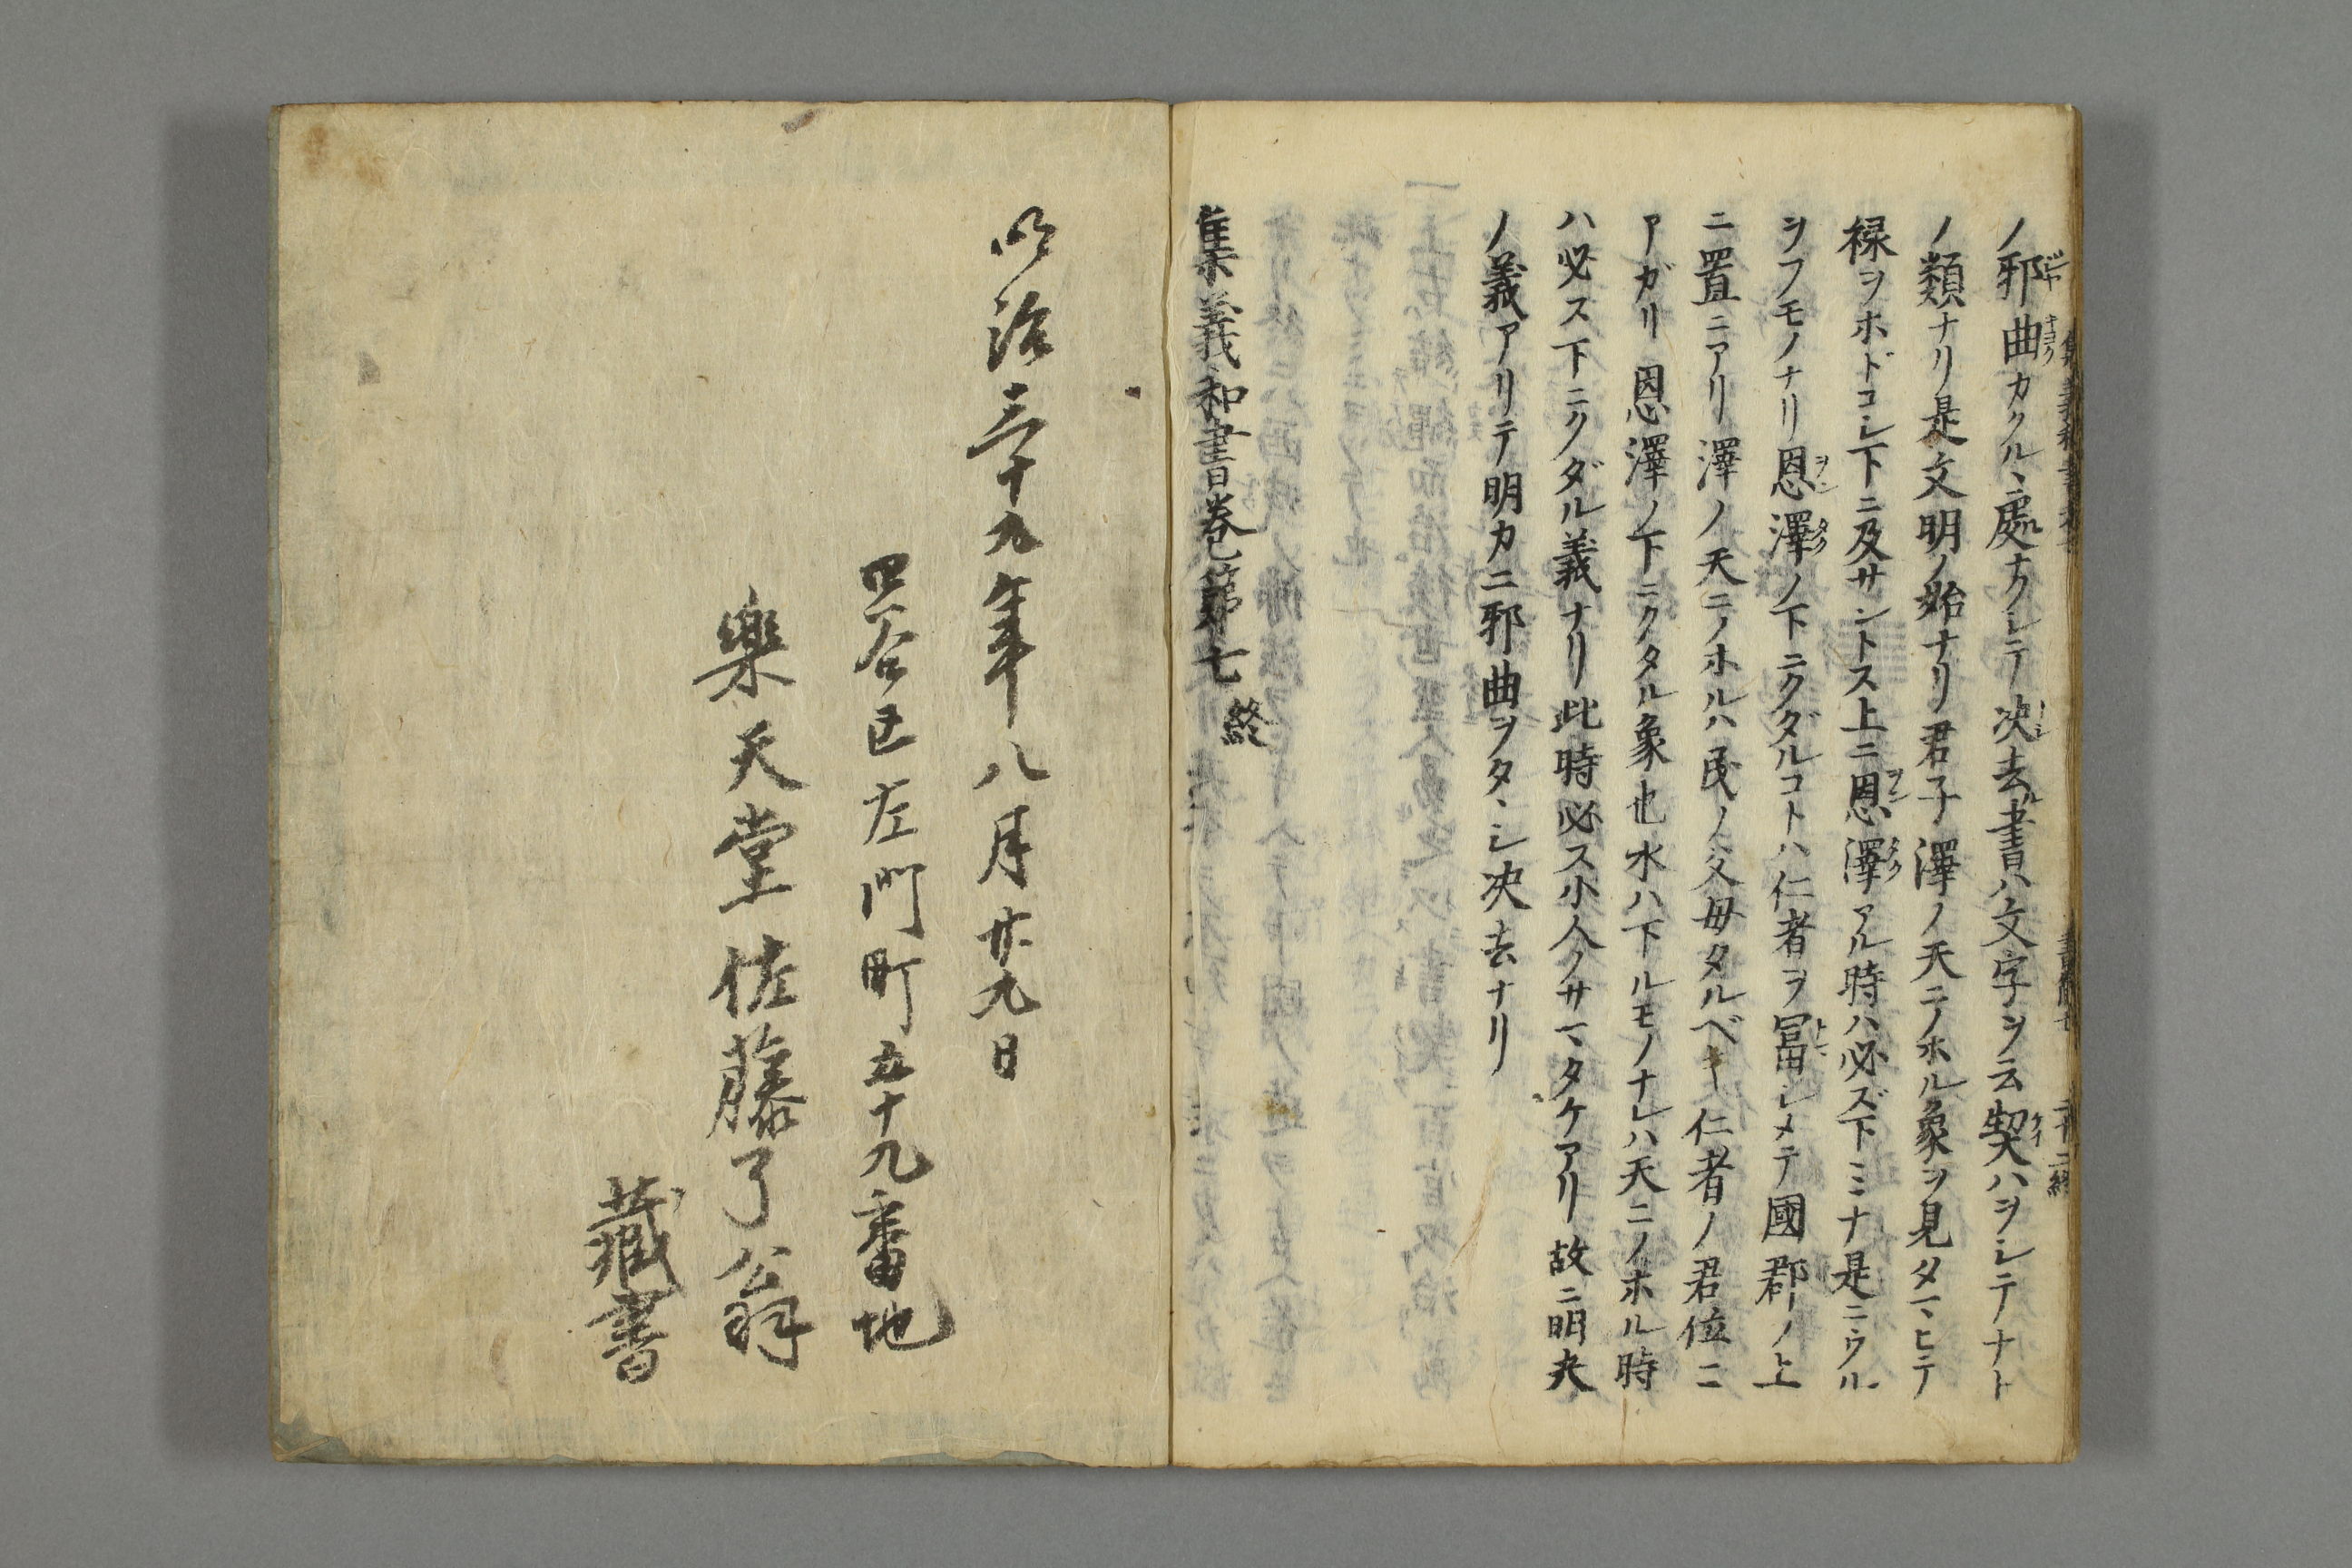 ノ邪曲カクルヽ處ナクシテ決去書ハ文字ヲ云契ハヲシテナト
ノ類ナリ是文明ノ始ナリ君子澤ノ天ニノホル象ヲ見タマヒテ
禄ヲホドコシ下ニ及サントス上ニ恩澤アル時ハ必ズ下ミナ是ニウル
ヲフモノナリ恩澤ノ下ニクダルコトハ仁者ヲ冨シメテ國郡ノ上
ニ置ニアリ澤ノ天ニノホルハ民ノ父母タルベキ仁者ノ君位ニ
アガリ恩澤ノ下ニクタル象也水ハ下ルモノナレハ天ニノホル時
ハ必ス下ニクダル義ナリ此時必ス小人ノサマタケアリ故ニ明夬
ノ義アリテ明カニ邪曲ヲタヽシ決去ナリ
集義和書巻第七終
明治三十九年八月廿九日
四谷区左門町五十九番地
樂天堂佐藤了翁
藏書